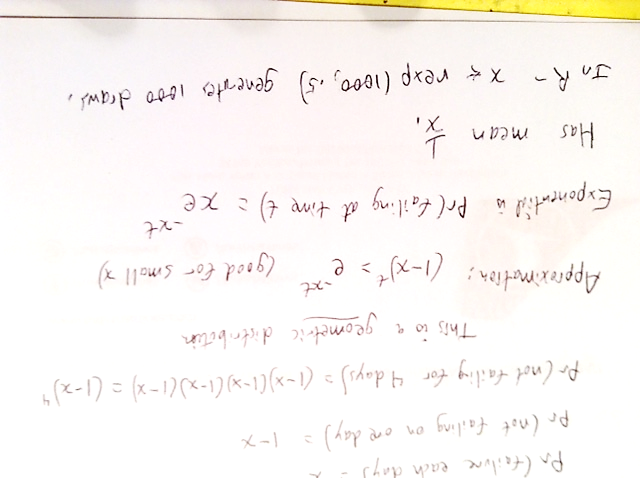 Pr(failure each day) - x
Pr(not failing on one day) = 1-x
Pr(not failing for 4 days) = (1-x)(1-x)(1-x)(1-x) = (1-x)^4
This is a geometric distribution
Approximation: (1-x)^t ≈ e^-xt (good for small x)
Exponential is Pr(failing at time t) = xe^-xt
Has mean 1/x.
In R - x <- rexp(1000, .5) generates 1000 draws.